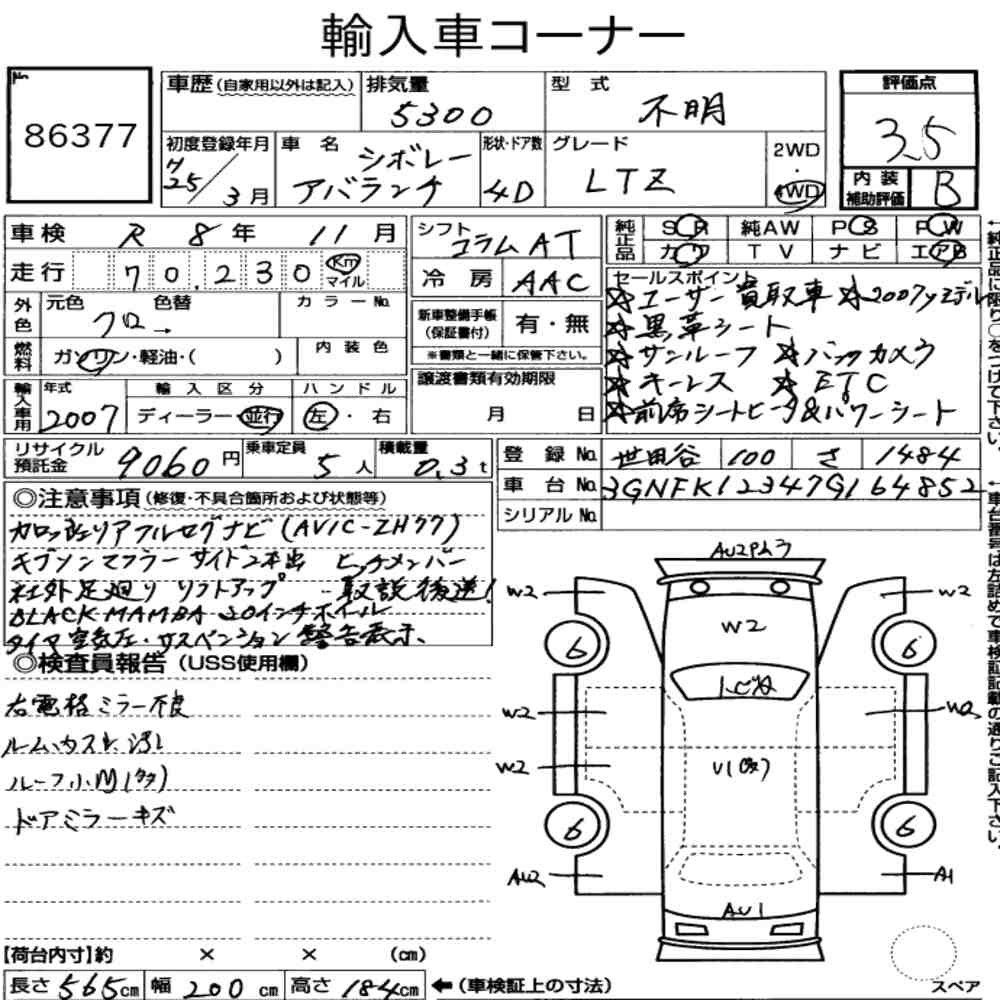 輸入車コーナー
No 86377
車歴(自家用以外は記入) 排気量 5300 型式 不明 評価点 3.5
初度登録年月 H25/3月 車名 シボレー アバランチ 形状・ドア数 4D グレード LTZ 2WD・4WD 内装補助評価 B
車検 R 8年 11月 シフト コラムAT 純正品 SR 純AW PS PW
走行 70,230 Km マイル 冷房 AAC カワ TV ナビ エアB
外色 元色 色替 カラーNo.
クロ→
新車整備手帳(保証書付) 有・無
※書類と一緒に保管下さい。
燃料 ガソリン・軽油・( ) 内装色
セールスポイント
☆ユーザー買取車 ☆2007yモデル
☆黒革シート
☆サンルーフ ☆バックカメラ
☆キーレス ☆ETC
☆前席シートヒータ&パワーシート
輸入車用 年式 2007 輸入区分 ディーラー・並行 ハンドル 左・右
譲渡書類有効期限 月 日
リサイクル預託金 9060円 乗車定員 5人 積載量 0.3t
登録No. 世田谷 100 さ 1484
車台No. 3GNFK12347G164852
シリアルNo.
◎注意事項(修復・不具合箇所および状態等)
カロッツェリアフルセグナビ(AVIC-ZH77)
ギブソンマフラーサイド2本出 ヒッチメンバー
社外足廻り リフトアップ 取説後送!
BLACK MAMBA 20インチホイル
タイヤ空気圧・サスペンション警告表示、
◎検査員報告(USS使用欄)
右電格ミラー不良
ルーム,カスレ汚レ
ルーフ小
ドアミラーキズ
AU2
W2 W2
W2
6 6
W2
W2
W2
6 6
AU2 A1
AU1
【荷台内寸】約 × × (cm)
長さ 565cm 幅 200cm 高さ 184cm ←(車検証上の寸法)
スペア
←純正品に限り○をつけて下さい。
←車台番号は左詰めで車検証記載の通りご記入下さい。